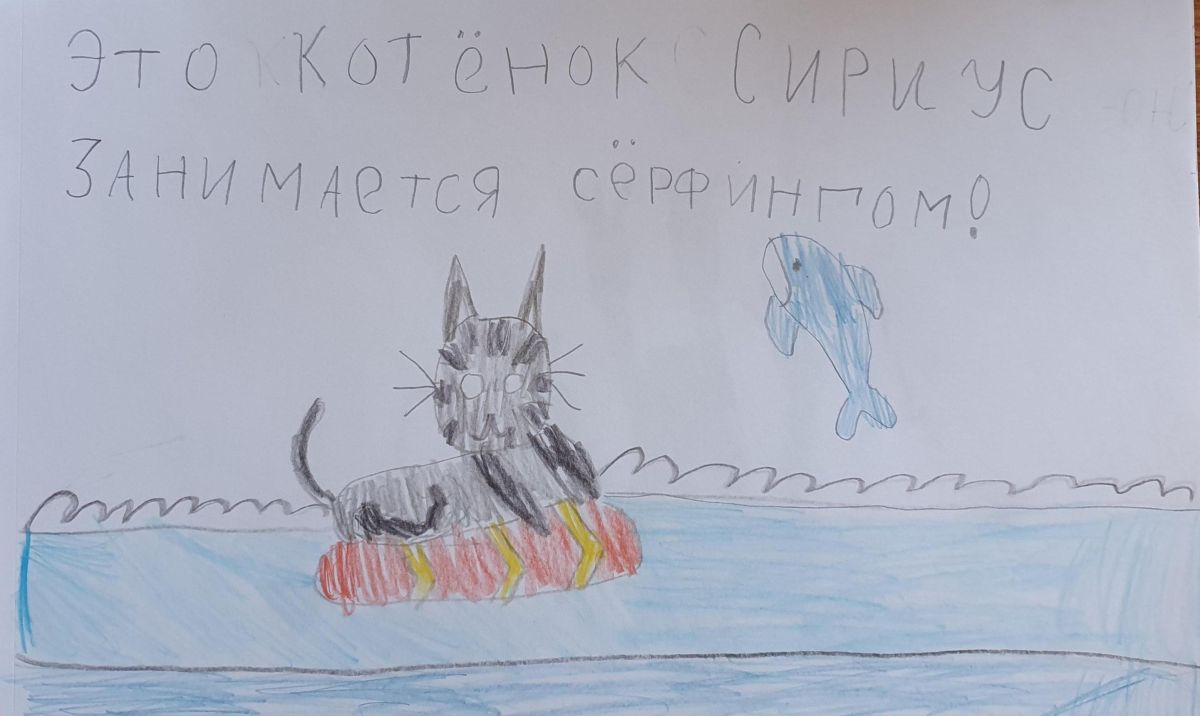 ЭТО КОТЁНОК СИРИУС
ЗАНИМАЕТСЯ СЁРФИНГОМ!